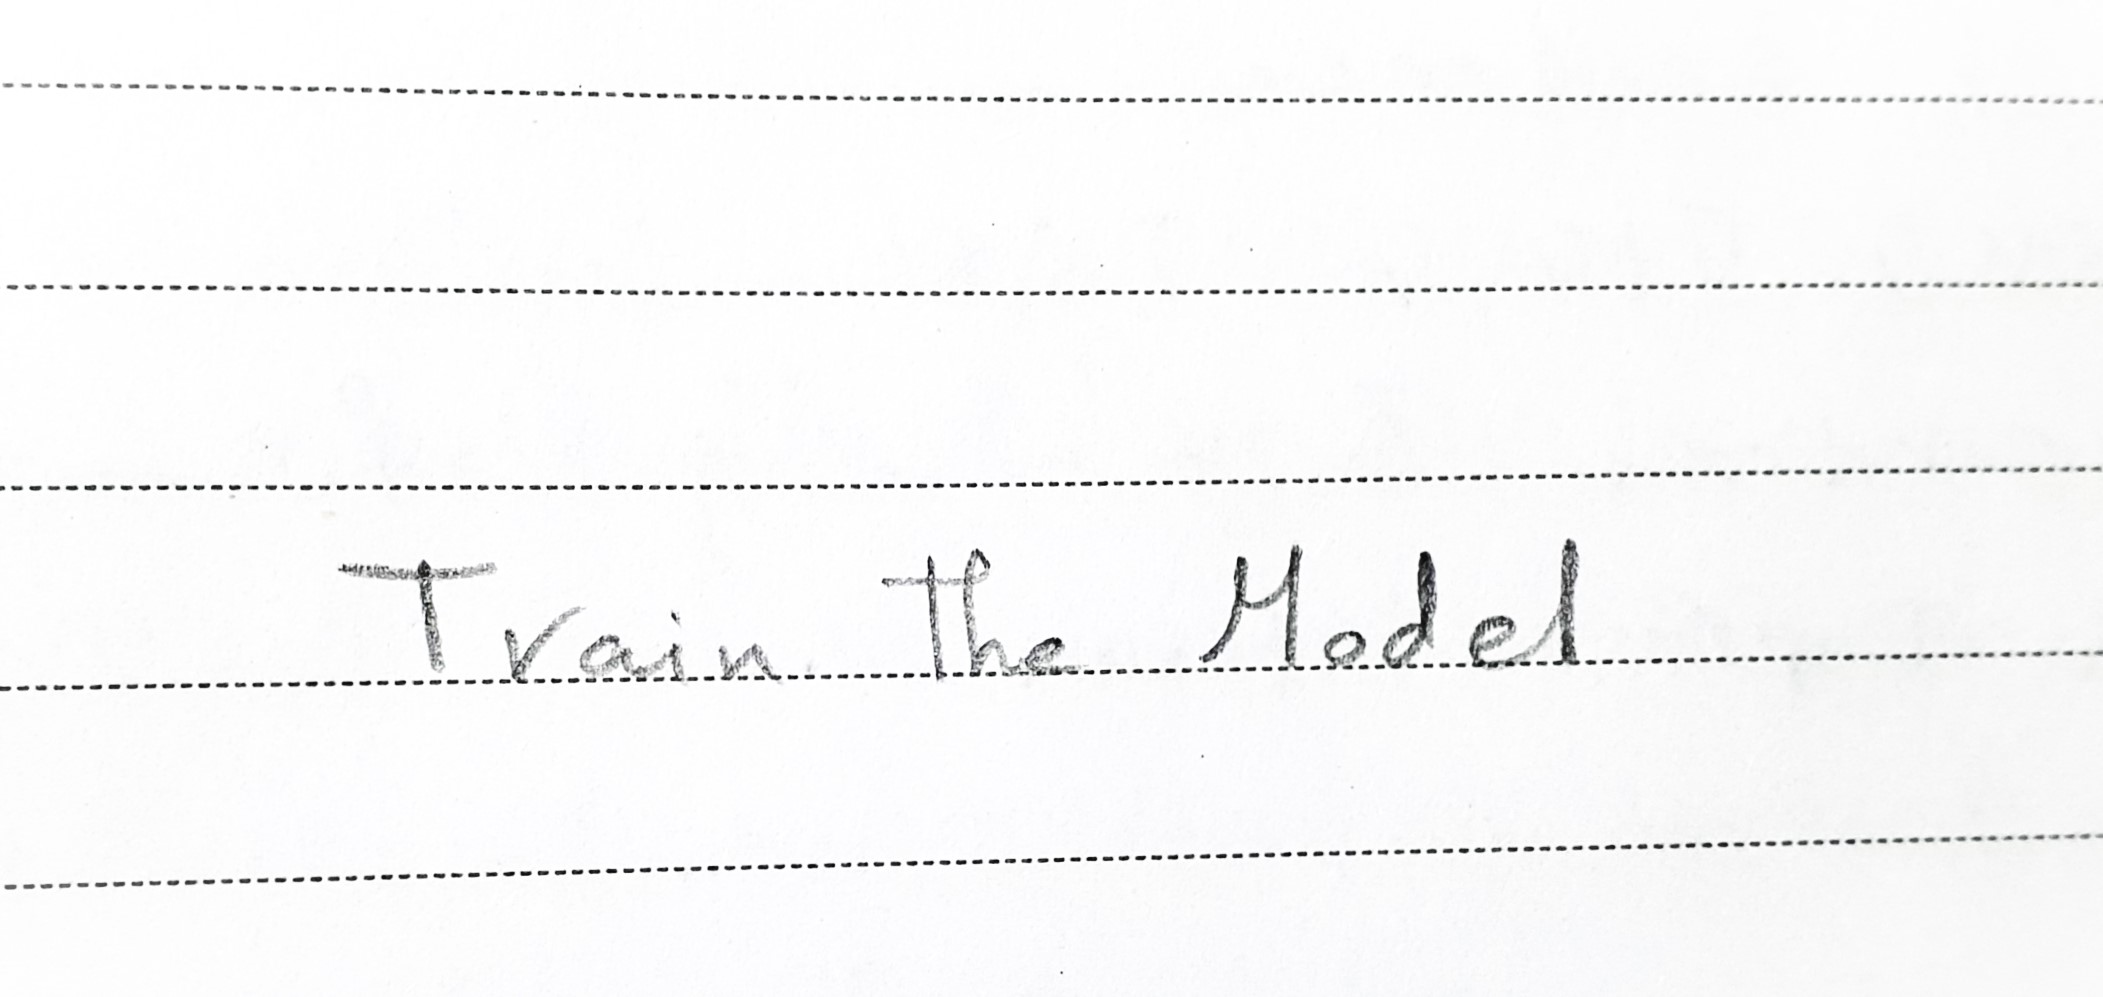 Train the Model